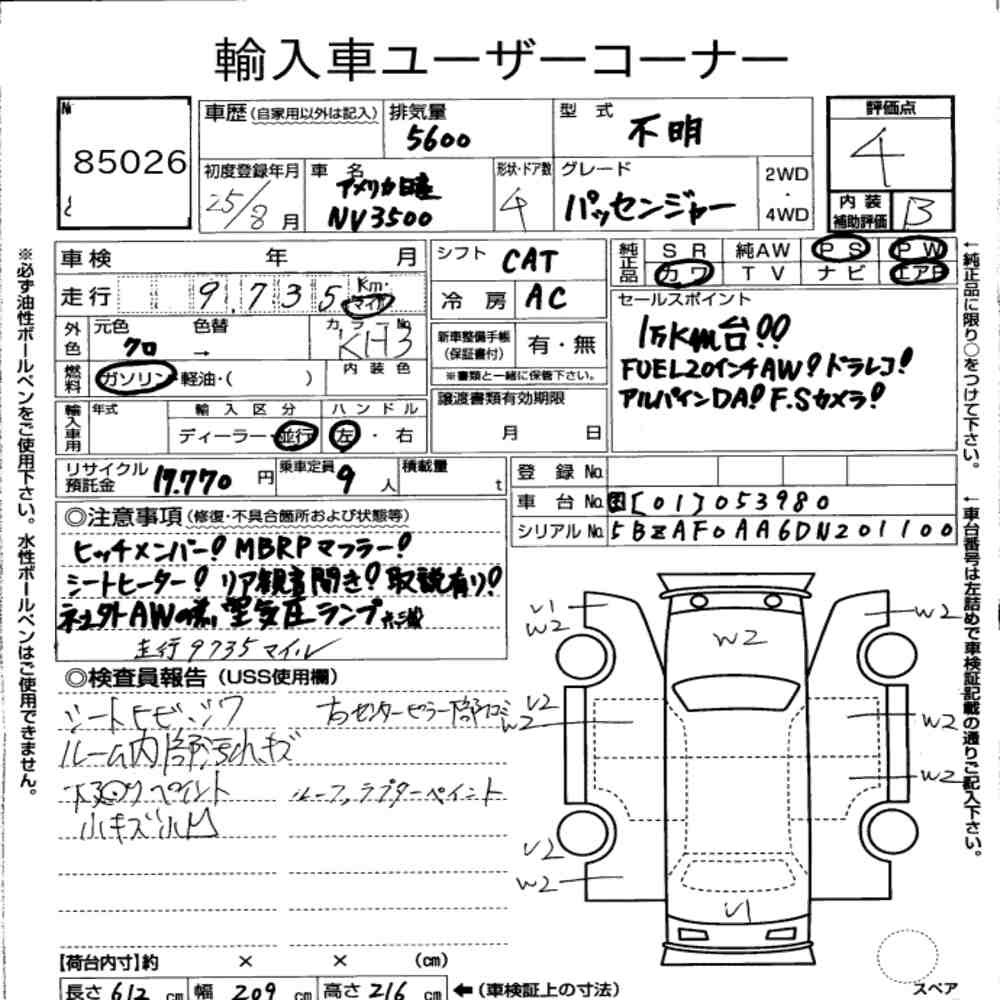 輸入車ユーザーコーナー
№
85026
車歴(自家用以外は記入)
排気量
5600
型式
不明
評価点
4
初度登録年月
25/8月
車名
アメリカ日産
NV3500
形状・ドア数
4
グレード
パッセンジャー
2WD
・
4WD
内装
補助評価
B
車検 年 月
走行 9,735 Km・マイル
外色
元色
クロ
色替
→
カラーNo.
KH3
燃料
ガソリン・軽油・( )
内装色
輸入車用
年式
輸入区分
ディーラー・並行
ハンドル
左・右
シフト CAT
冷房 AC
新車整備手帳
(保証書付)
有・無
※書類と一緒に保管下さい。
譲渡書類有効期限
月 日
純正品
SR 純AW PS PW
カワ TV ナビ エアB
セールスポイント
1万Km台!!
FUEL20インチAW!ドラレコ!
アルパインDA!F.Sカメラ!
リサイクル預託金 17.770円
乗車定員 9人
積載量 t
登録No.
車台No. 国[01]053980
シリアルNo. 5BZAF0AA6DN201100
◎注意事項(修復・不具合箇所および状態等)
ヒッチメンバー!MBRPマフラー!
シートヒーター!リア観音開き!取説有り!
AWの為、空気圧ランプ
走行9735マイル
◎検査員報告(USS使用欄)
シートヒビ・シワ
ルーム内部汚れ、キズ
ペイント
小キズ小凹
右センターピラー下部凹
ルーフ、ラプターペイント
V1
W2
W2
W2
V2
W2
W2
W2
V2
W2
V1
スペア
【荷台内寸】約 × × (cm)
長さ 612 cm 幅 209 cm 高さ 216 cm ←(車検証上の寸法)
※必ず油性ボールペンをご使用下さい。水性ボールペンはご使用できません。
←純正品に限り○をつけて下さい。
←車台番号は左詰めで車検証記載の通りご記入下さい。